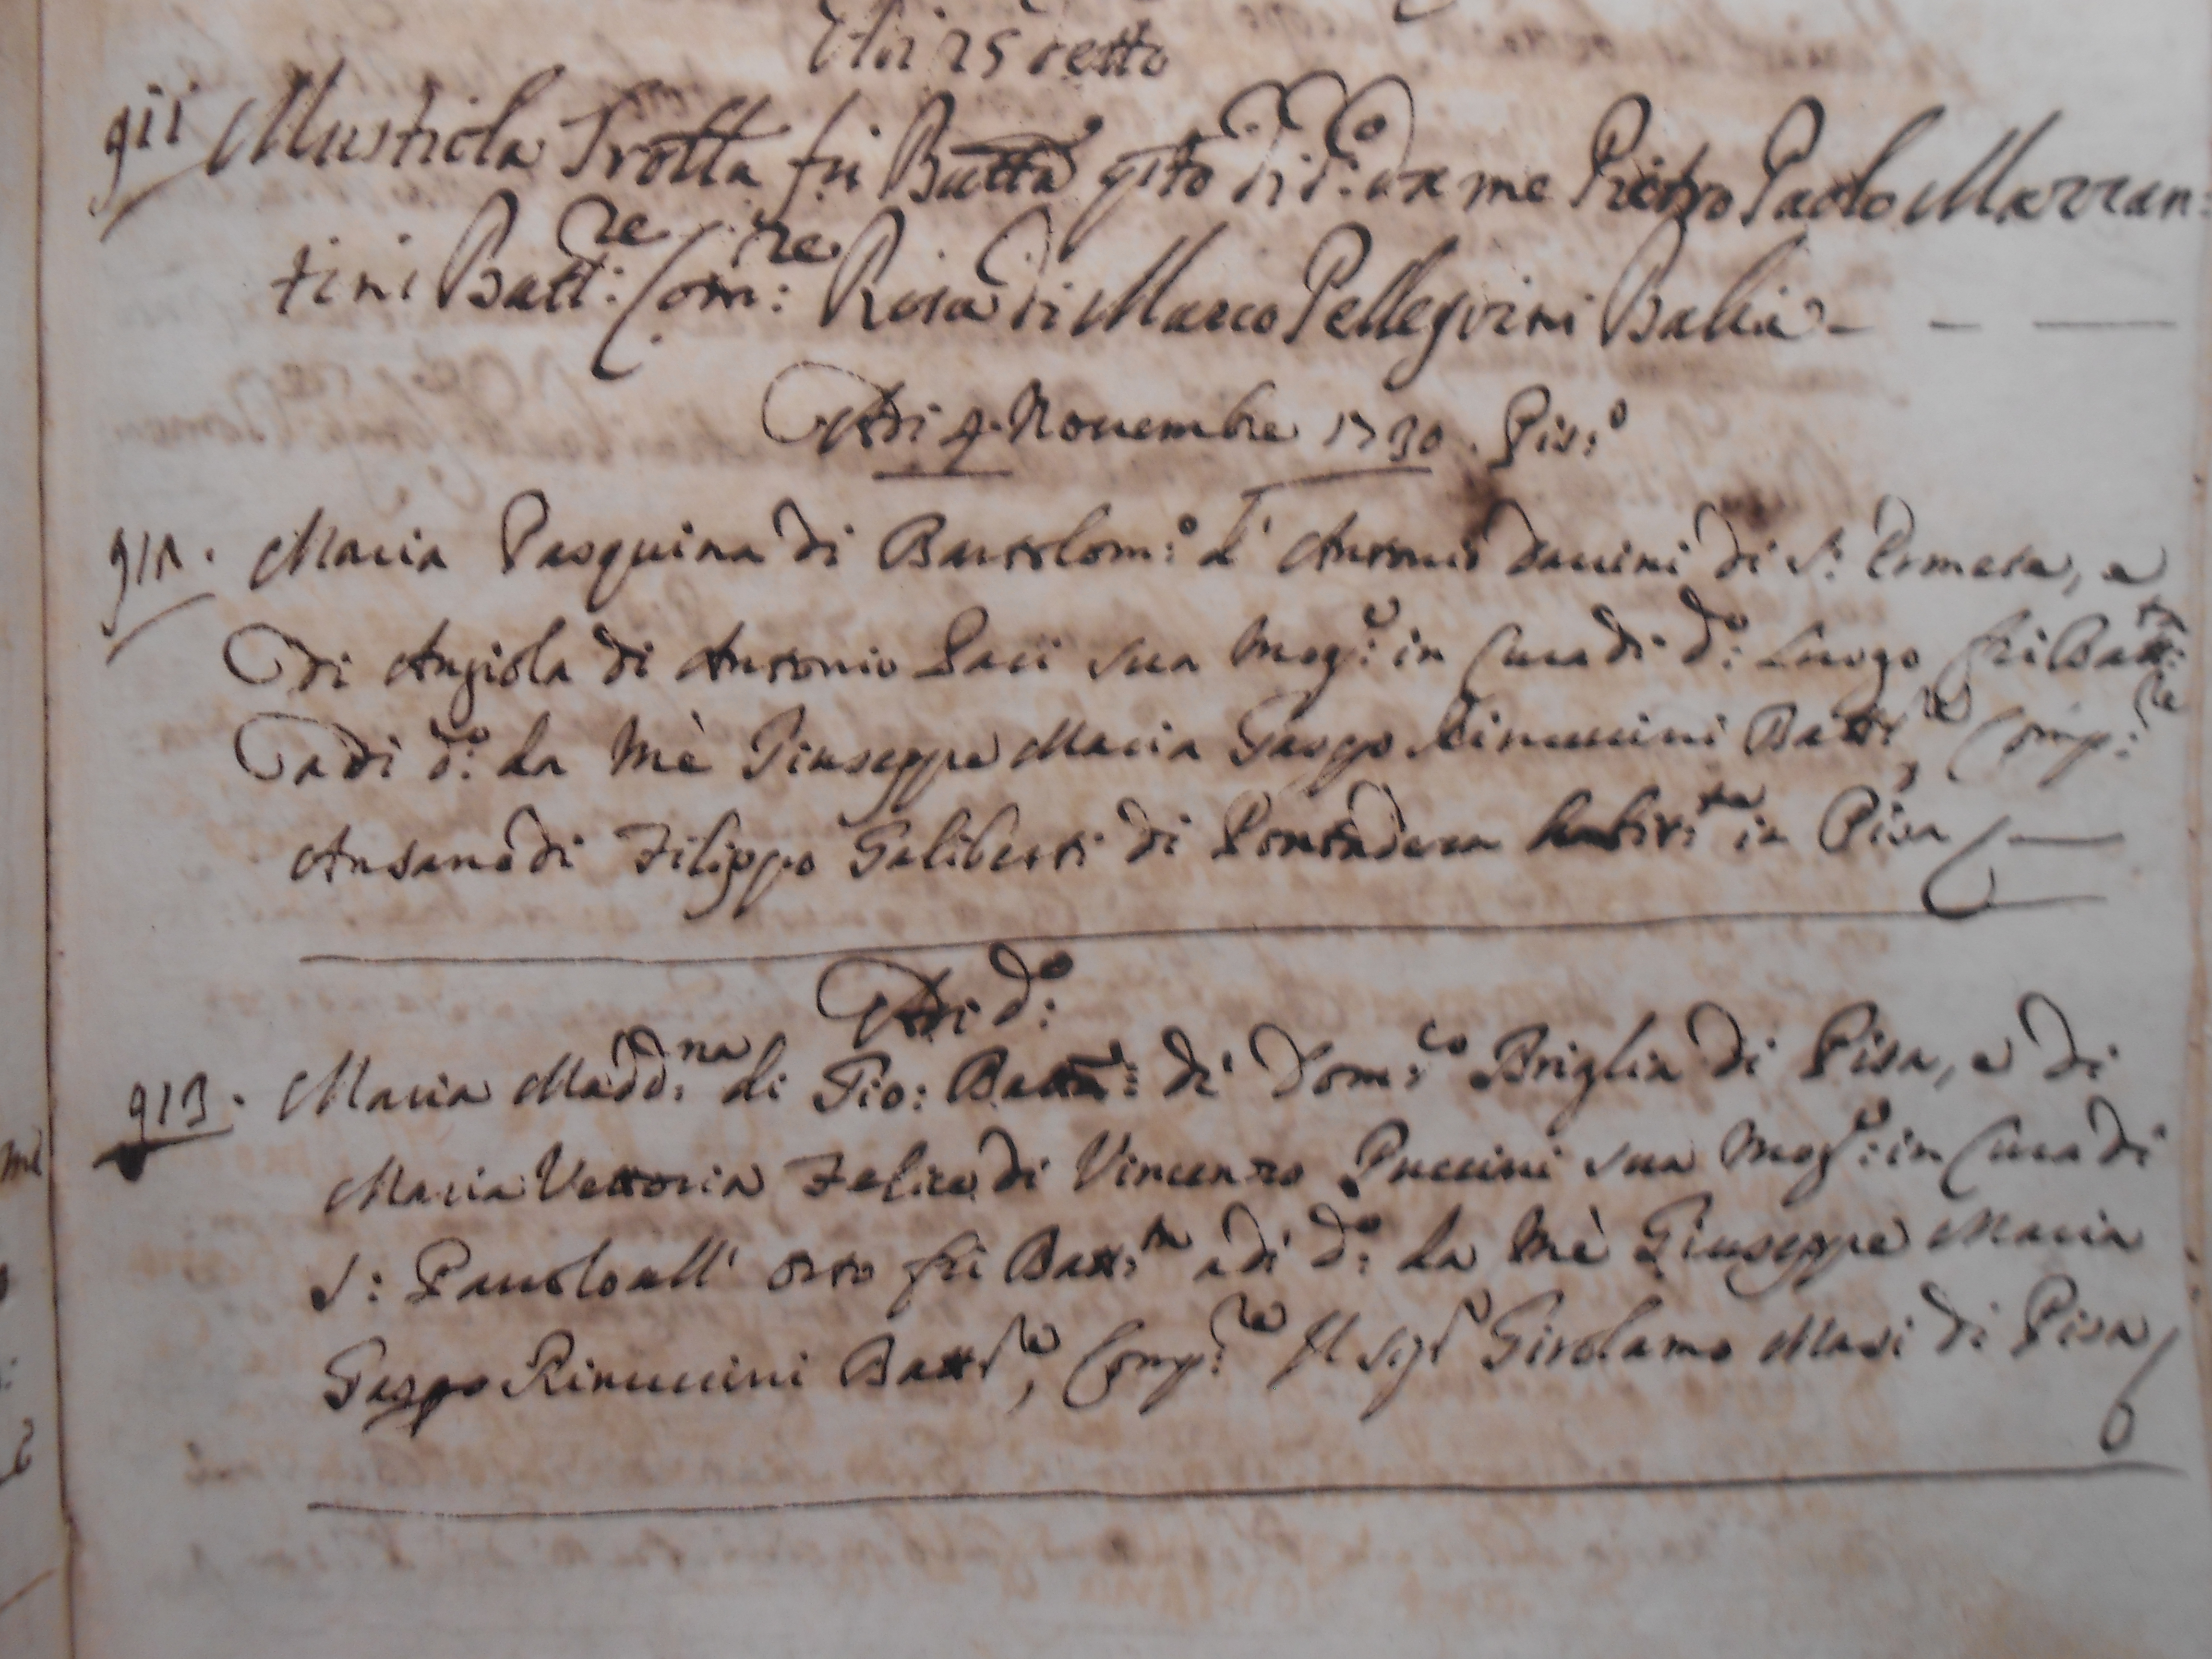 Adi 25 detto
911 Mustiola Trotta fu Batta gito di d:o da me Pietro Paolo Marran-
tini Batt:re Com:re Rosa di Marco Pellegrini Balia - - -
Adi 4. Novembre 1730. Pis:o
912. Maria Pasquina di Bartolom:o d' Antonio Davini di S: Ermete, e
di Angiola di Antonio Paci sua Mog:e in Cura di d:o Luogo fù Batt:ta
adi d:o da Mè Giuseppe Maria Gaspo Rinuccini Batt:re, Comp:re
Ansano di Filippo Galiberti di Pontadera habit:te in Pisa
Adi d:o
913. Maria Madd:na di Gio: Batta: di Dom:co Briglia di Pisa, e di
Maria Vettoria Felice di Vincenzo Puccini sua Mog:e in Cura di
S: Pauolo all' Orto fù Batt:ta adi d:o da Mè Giuseppe Maria
Gaspo Rinuccini Batt:re, Comp:re Il Sig:r Girolamo Masi di Pisa